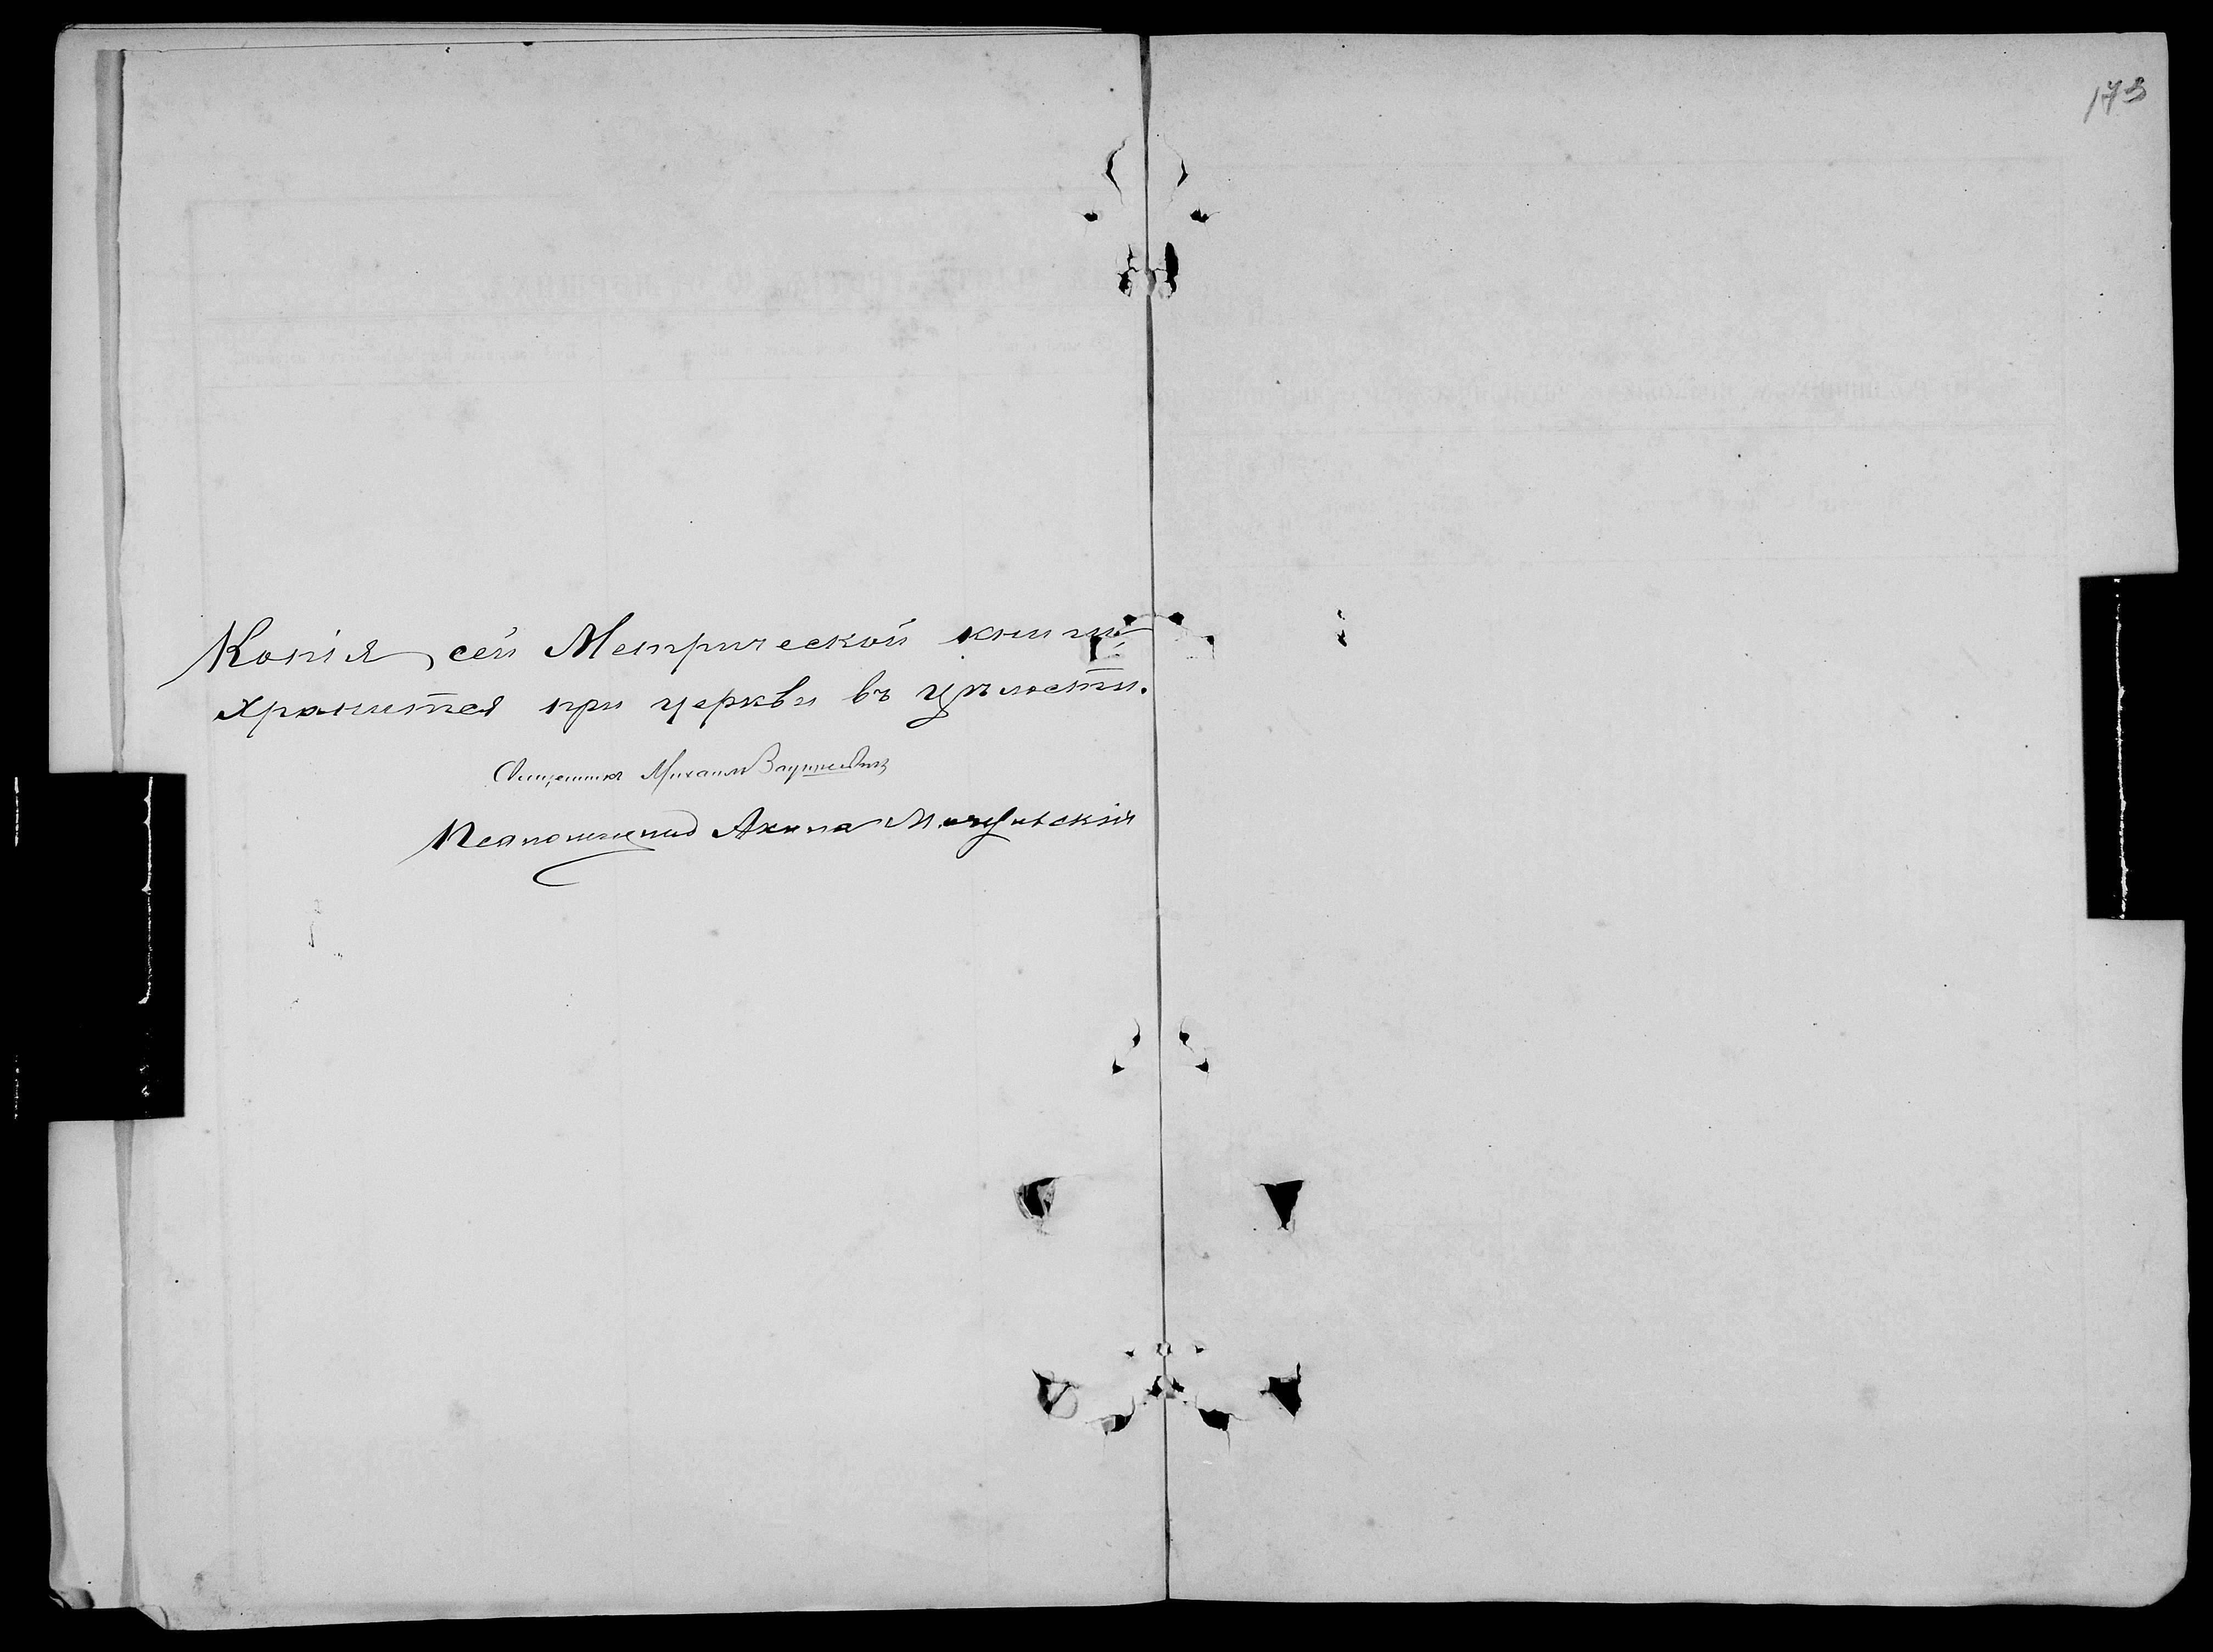 173
Копія сей Метрической книги
хранится при церкви въ цѣлости.
Священникъ Михаилъ
Псаломщикъ Акила Мачульскій